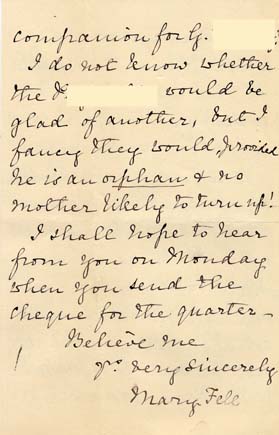 companion for G.
I do not know whether
the D would be
glad of another, but I
fancy they would, provided
he is an orphan & no
mother likely to turn up!
I shall hope to hear
from you on Monday
when you send the
cheque for the quarter -
Believe me
yrs very sincerely
Mary Fell